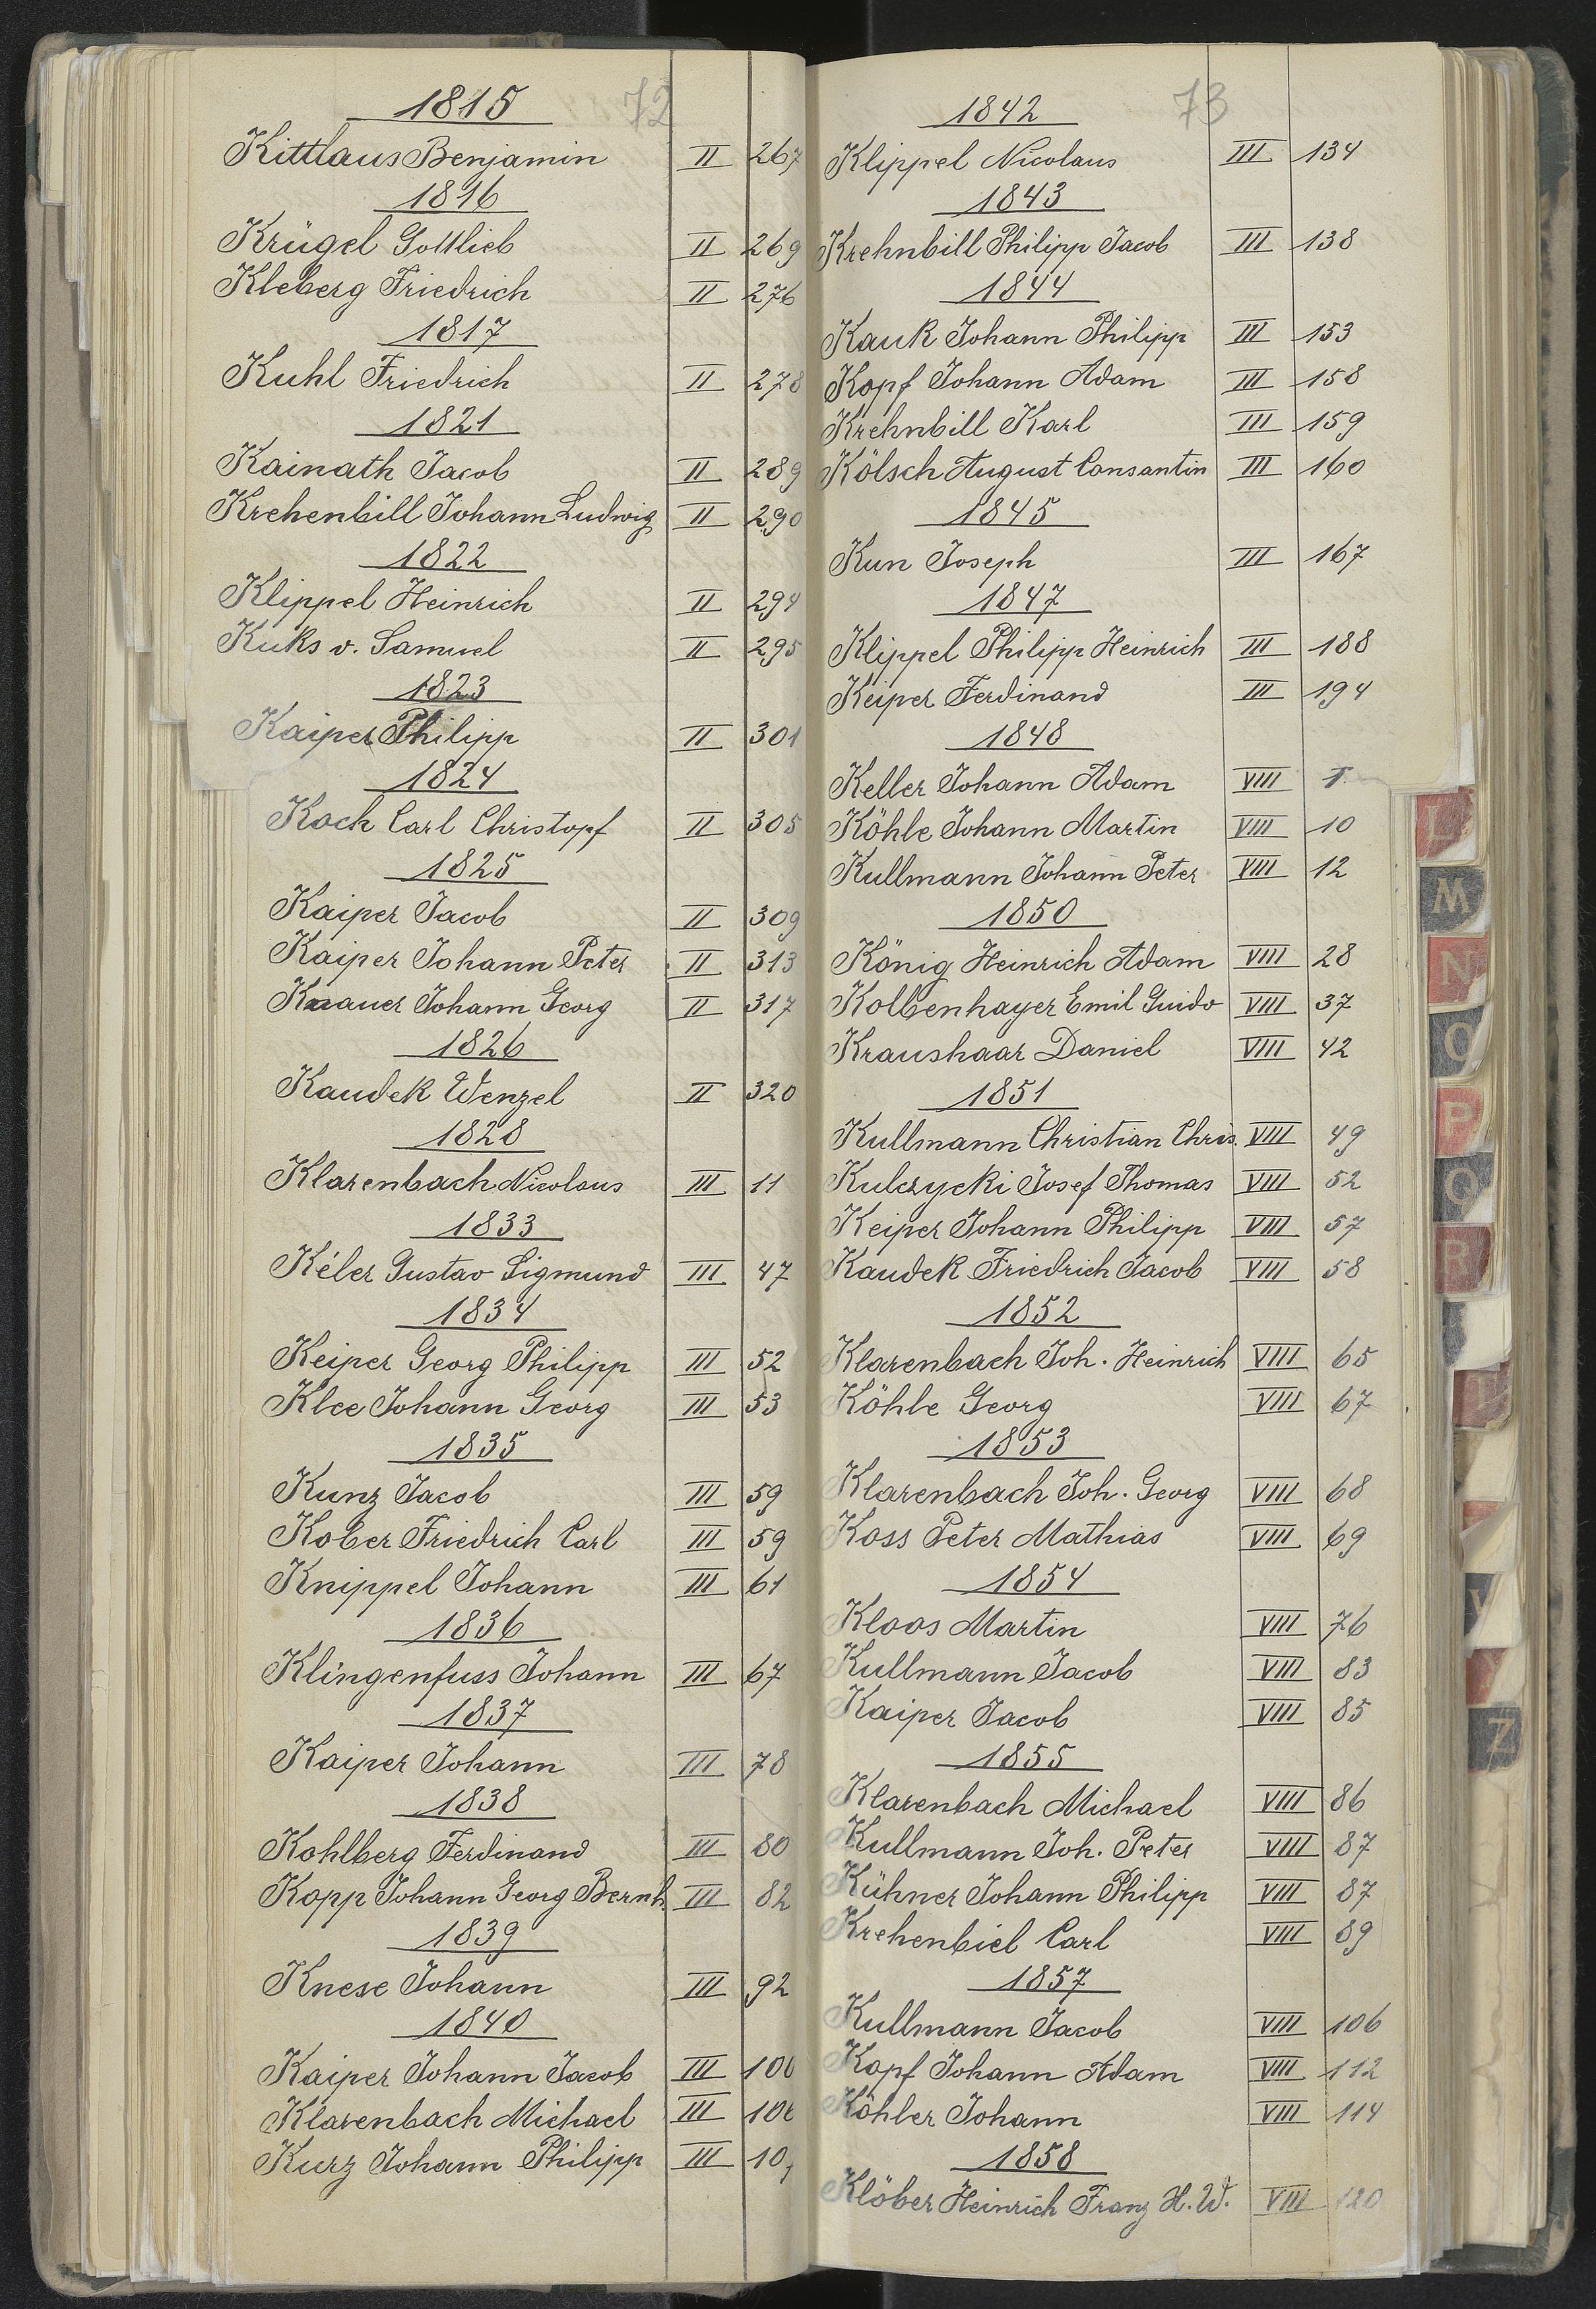 1815 72
Kittlaus Benjamin II 267
1816
Krügel Gottlieb II 269
Kleberg Friedrich II 276
1817
Kuhl Friedrich II 278
1821
Kainath Jacob II 289
Krehenbill Johann Ludwig II 290
1822
Klippel Heinrich II 294
Kuks v. Samuel II 295
1823
Kaiper Philipp II 301
1824
Koch Carl Christopf II 305
1825
Kaiper Jacob II 309
Kaiper Johann Peter II 313
Knauer Johann Georg II 317
1826
Kaudek Wenzel II 320
1828
Klarenbach Nicolaus III 11
1833
Kéler Gustav Sigmund III 47
1834
Keiper Georg Philipp III 52
Klee Johann Georg III 53
1835
Kunz Jacob III 59
Kober Friedrich Carl III 59
Knippel Johann III 61
1836
Klingenfuss Johann III 67
1837
Kaiper Johann III 78
1838
Kohlberg Ferdinand III 80
Kopp Johann Georg Bernh. III 82
1839
Knese Johann III 92
1840
Kaiper Johann Jacob III
Klarenbach Michael III
Kurz Johann Philipp III
1842 73
Klippel Nicolaus III 134
1843
Krehnbill Philipp Jacob III 138
1844
Kauk Johann Philipp III 153
Kopf Johann Adam III 158
Krehnbill Karl III 159
Kölsch August Consantin III 160
1845
Kun Joseph III 167
1847
Klippel Philipp Heinrich III 188
Keiper Ferdinand III 194
1848
Keller Johann Adam VIII
Köhle Johann Martin VIII 10
Kullmann Johann Peter VIII 12
1850
König Heinrich Adam VIII 28
Kolbenhayer Emil Guido VIII 37
Kraushaar Daniel VIII 42
1851
Kullmann Christian Chris. VIII 49
Kulczycki Josef Thomas VIII 52
Keiper Johann Philipp VIII 57
Kaudek Friedrich Jacob VIII 58
1852
Klarenbach Joh. Heinrich VIII 65
Köhle Georg VIII 67
1853
Klarenbach Joh. Georg VIII 68
Koss Peter Mathias VIII 69
1854
Kloos Martin VIII 76
Kullmann Jacob VIII 83
Kaiper Jacob VIII 85
1855
Klarenbach Michael VIII 86
Kullmann Joh. Peter VIII 87
Kühner Johann Philipp VIII 87
Krehenbiel Carl VIII 89
1857
Kullmann Jacob VIII 106
Kopf Johann Adam VIII 112
Köhler Johann VIII 114
1858
Klöber Heinrich Franz H. W. VIII 120
L
M
N
O
P
Q
R
Z